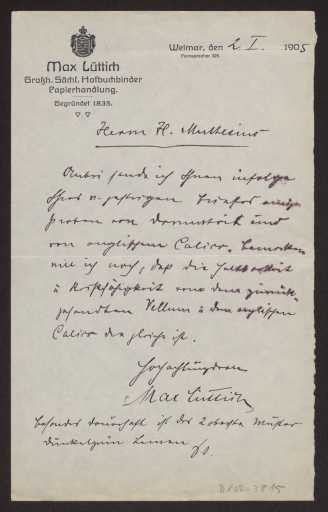 Max Lüttich
Großh. Sächs. Hofbuchbinder
Papierhandlung.
Gegründet 1835.
Weimar, den 2. I. 1905
Fernsprecher
Herrn H. Muthesius
Anbei sende ich Ihnen infolge
Ihres Briefes einige
Proben von und
von englischem Calico. Bemerken
will ich noch, daß die Haltbarkeit
u. von dem zurück-
gesandten Vellum u. dem englischen
Calico die gleiche ist.
Hochachtungsvoll
Max Lüttich
besonders dauerhaft ist das 2 oberste Muster
dunkelgrün Leinen